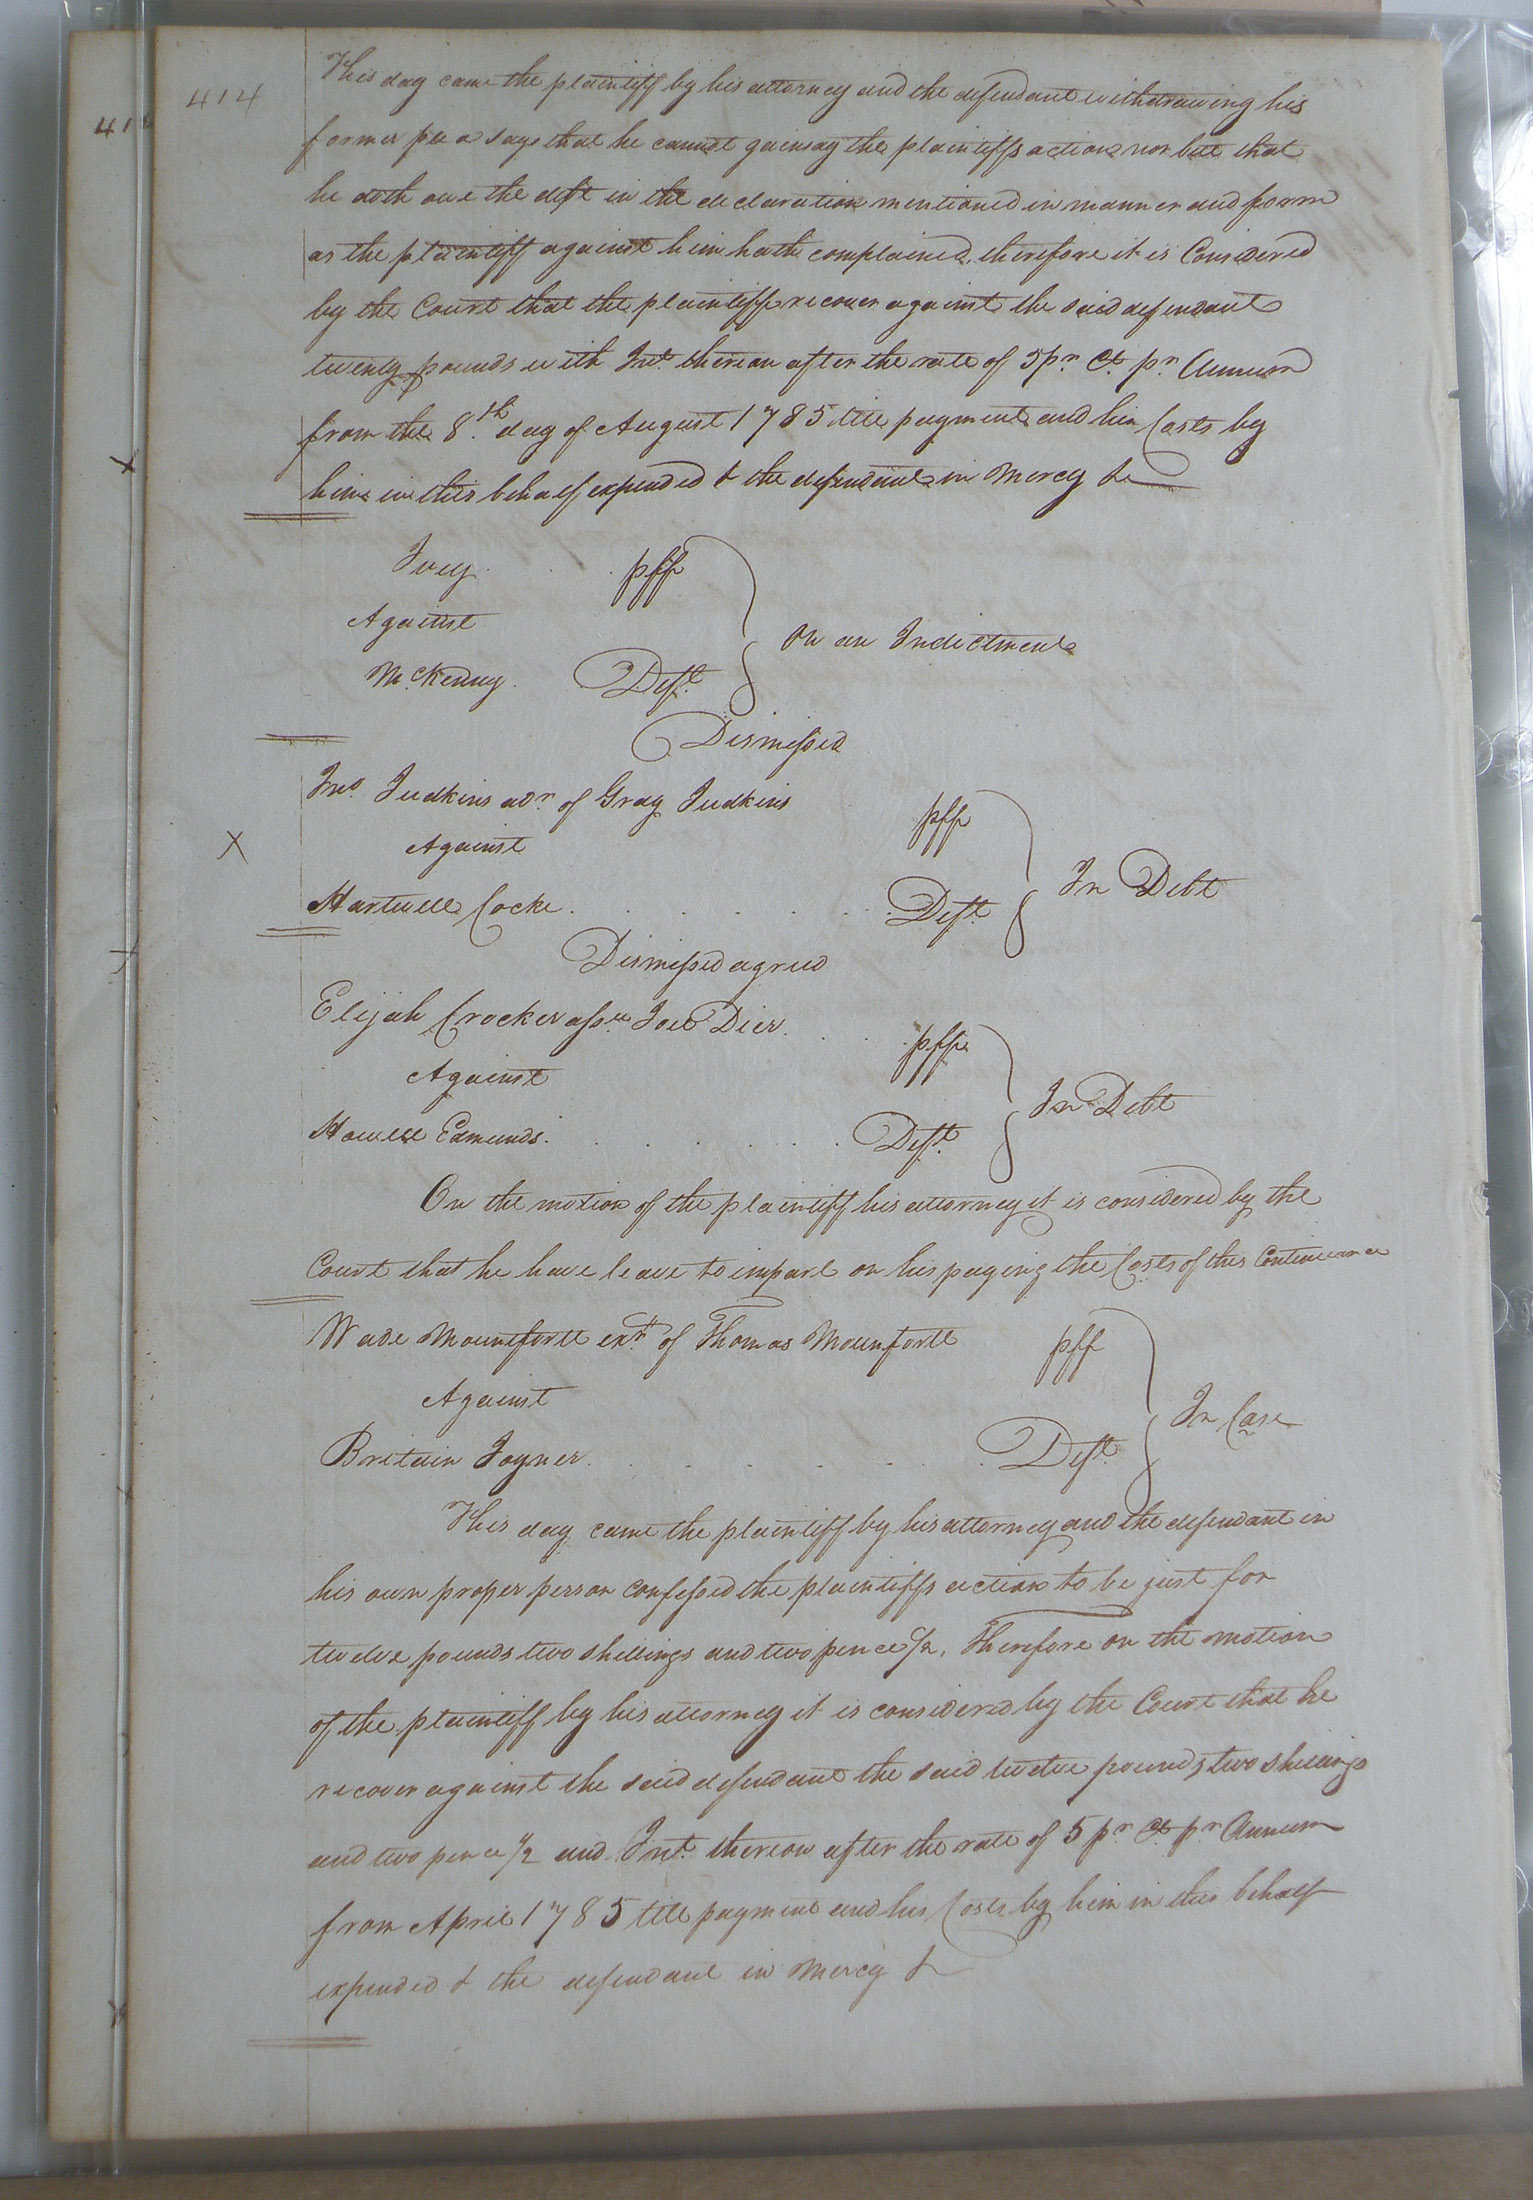 414
This day came the plaintiff by his attorney and the defendant withdrawing his
former plea says that he cannot gainsay the plaintiffs action nor but that
he doth owe the debt in the declaration mentioned in manner and form
as the plaintiff against him hath complained, therefore it is Considered
by the Court that the plaintiff recover against the said defendant
twenty pounds with Int. thereon after the rate of 5 pr. Ct. pr. Annum
from the 8.th day of August 1785 till payment and his Costs by
him in this behalf expended & the defendant in Mercy &c
Ivey . . pff
Against
On an Indictment
McKenny. Deft.
Dismissed
Jno. Judkins adr. of Gray Judkins pff
Against
In Debt
Hartwell Cocke . . . . . . Deft.
Dismissed agreed
Elijah Crocker assee Joel Dier. . . . pff
Against
In Debt
Howell Edmunds. . . . . . . Deft.
On the motion of the plaintiff his attorney it is considered by the
Court that he have leave to imparl on his paying the Costs of this Continuance
Wade Mountfortt exr. of Thomas Mounfortt pff
Against
In Case
Britain Joyner. . . . . . . Deft.
This day came the plaintiff by his attorney and the defendant in
his own proper person confessed the plaintiffs action to be just for
twelve pounds two shillings and two pence 1/2. Therefore on the motion
of the plaintiff by his attorney it is considered by the Court that he
recover against the said defendant the said twelve pounds two shillings
and two pence 1/2 and Int. thereon after the rate of 5 pr Ct pr Annum
from April 1785 till payment and his Costs by him in this behalf
expended & the defendant in Mercy &